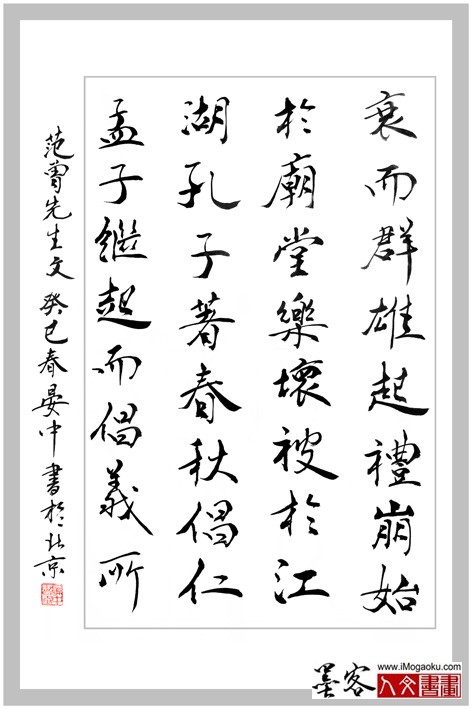 衰而群雄起禮崩始
於廟堂樂壞被於江
湖孔子著春秋倡仁
孟子繼起而倡義所
范曾先生文癸巳春晏中書於北京
www.iMogaoku.com
墨客
人文書畫